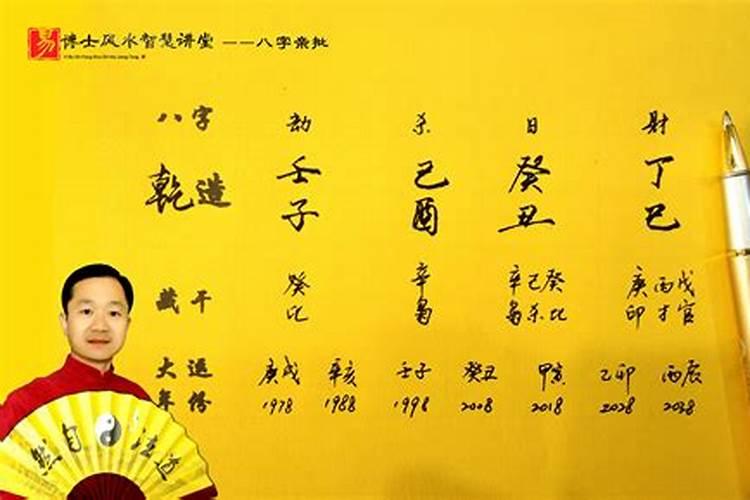 易 博士风水智慧讲堂 ——八字亲批
八字 劫 杀 日 财
乾造 壬 己 癸 丁
子 酉 丑 巳
藏干 癸 辛 辛己癸 庚丙戊
比 枭 枭杀比 印才官
大運 庚戌 辛亥 壬子 癸丑 甲寅 乙卯 丙辰
年份 1978 1988 1998 2008 2018 2028 2038
然自法道